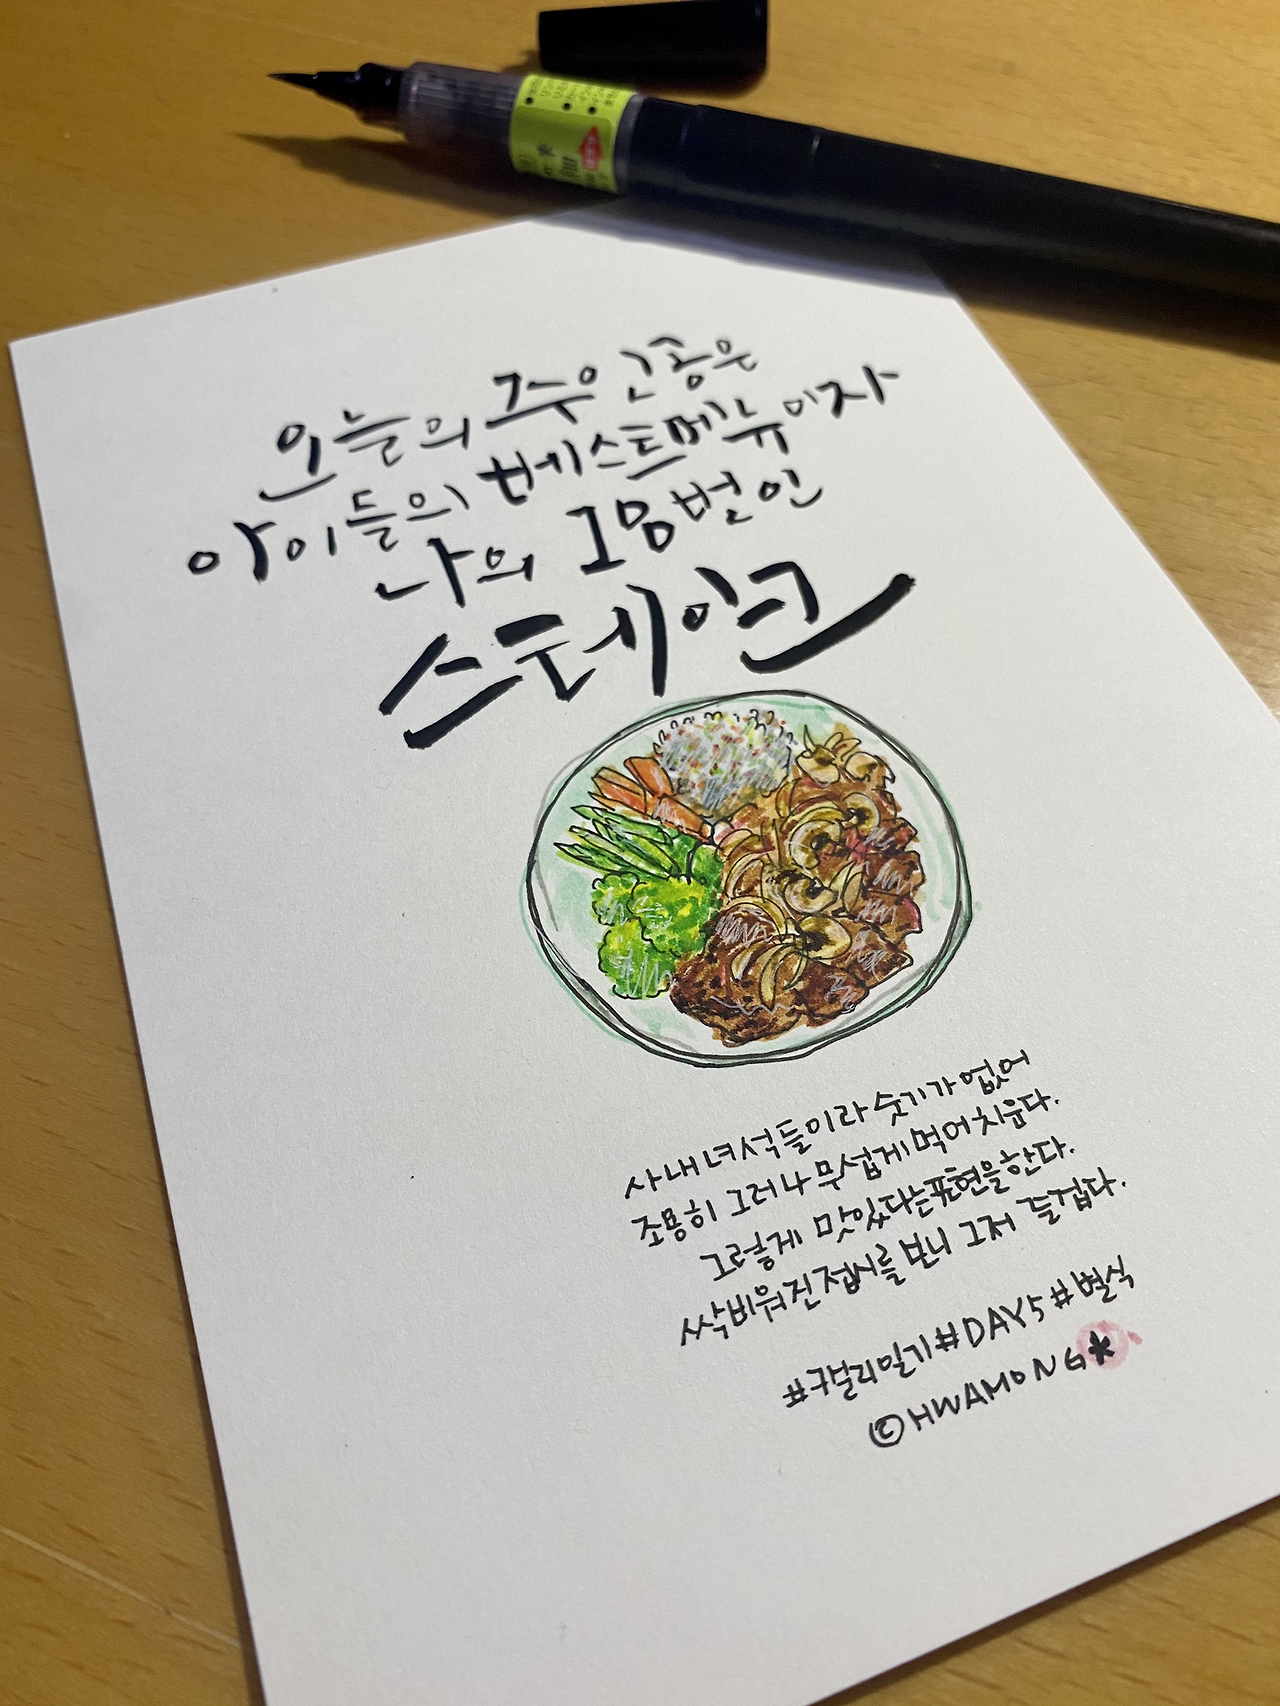 오늘의 주인공은
아이들의 베스트메뉴이자
나의 18번인
스테이크
사내녀석들이라 숫기가 없어
조용히 그러나 무섭게 먹어치운다.
그렇게 맛있다는 표현을 한다.
싹 비워진 접시를 보니 그저 즐겁다.
#구보리일기 #DAY5 #별식
©HWAMONG*